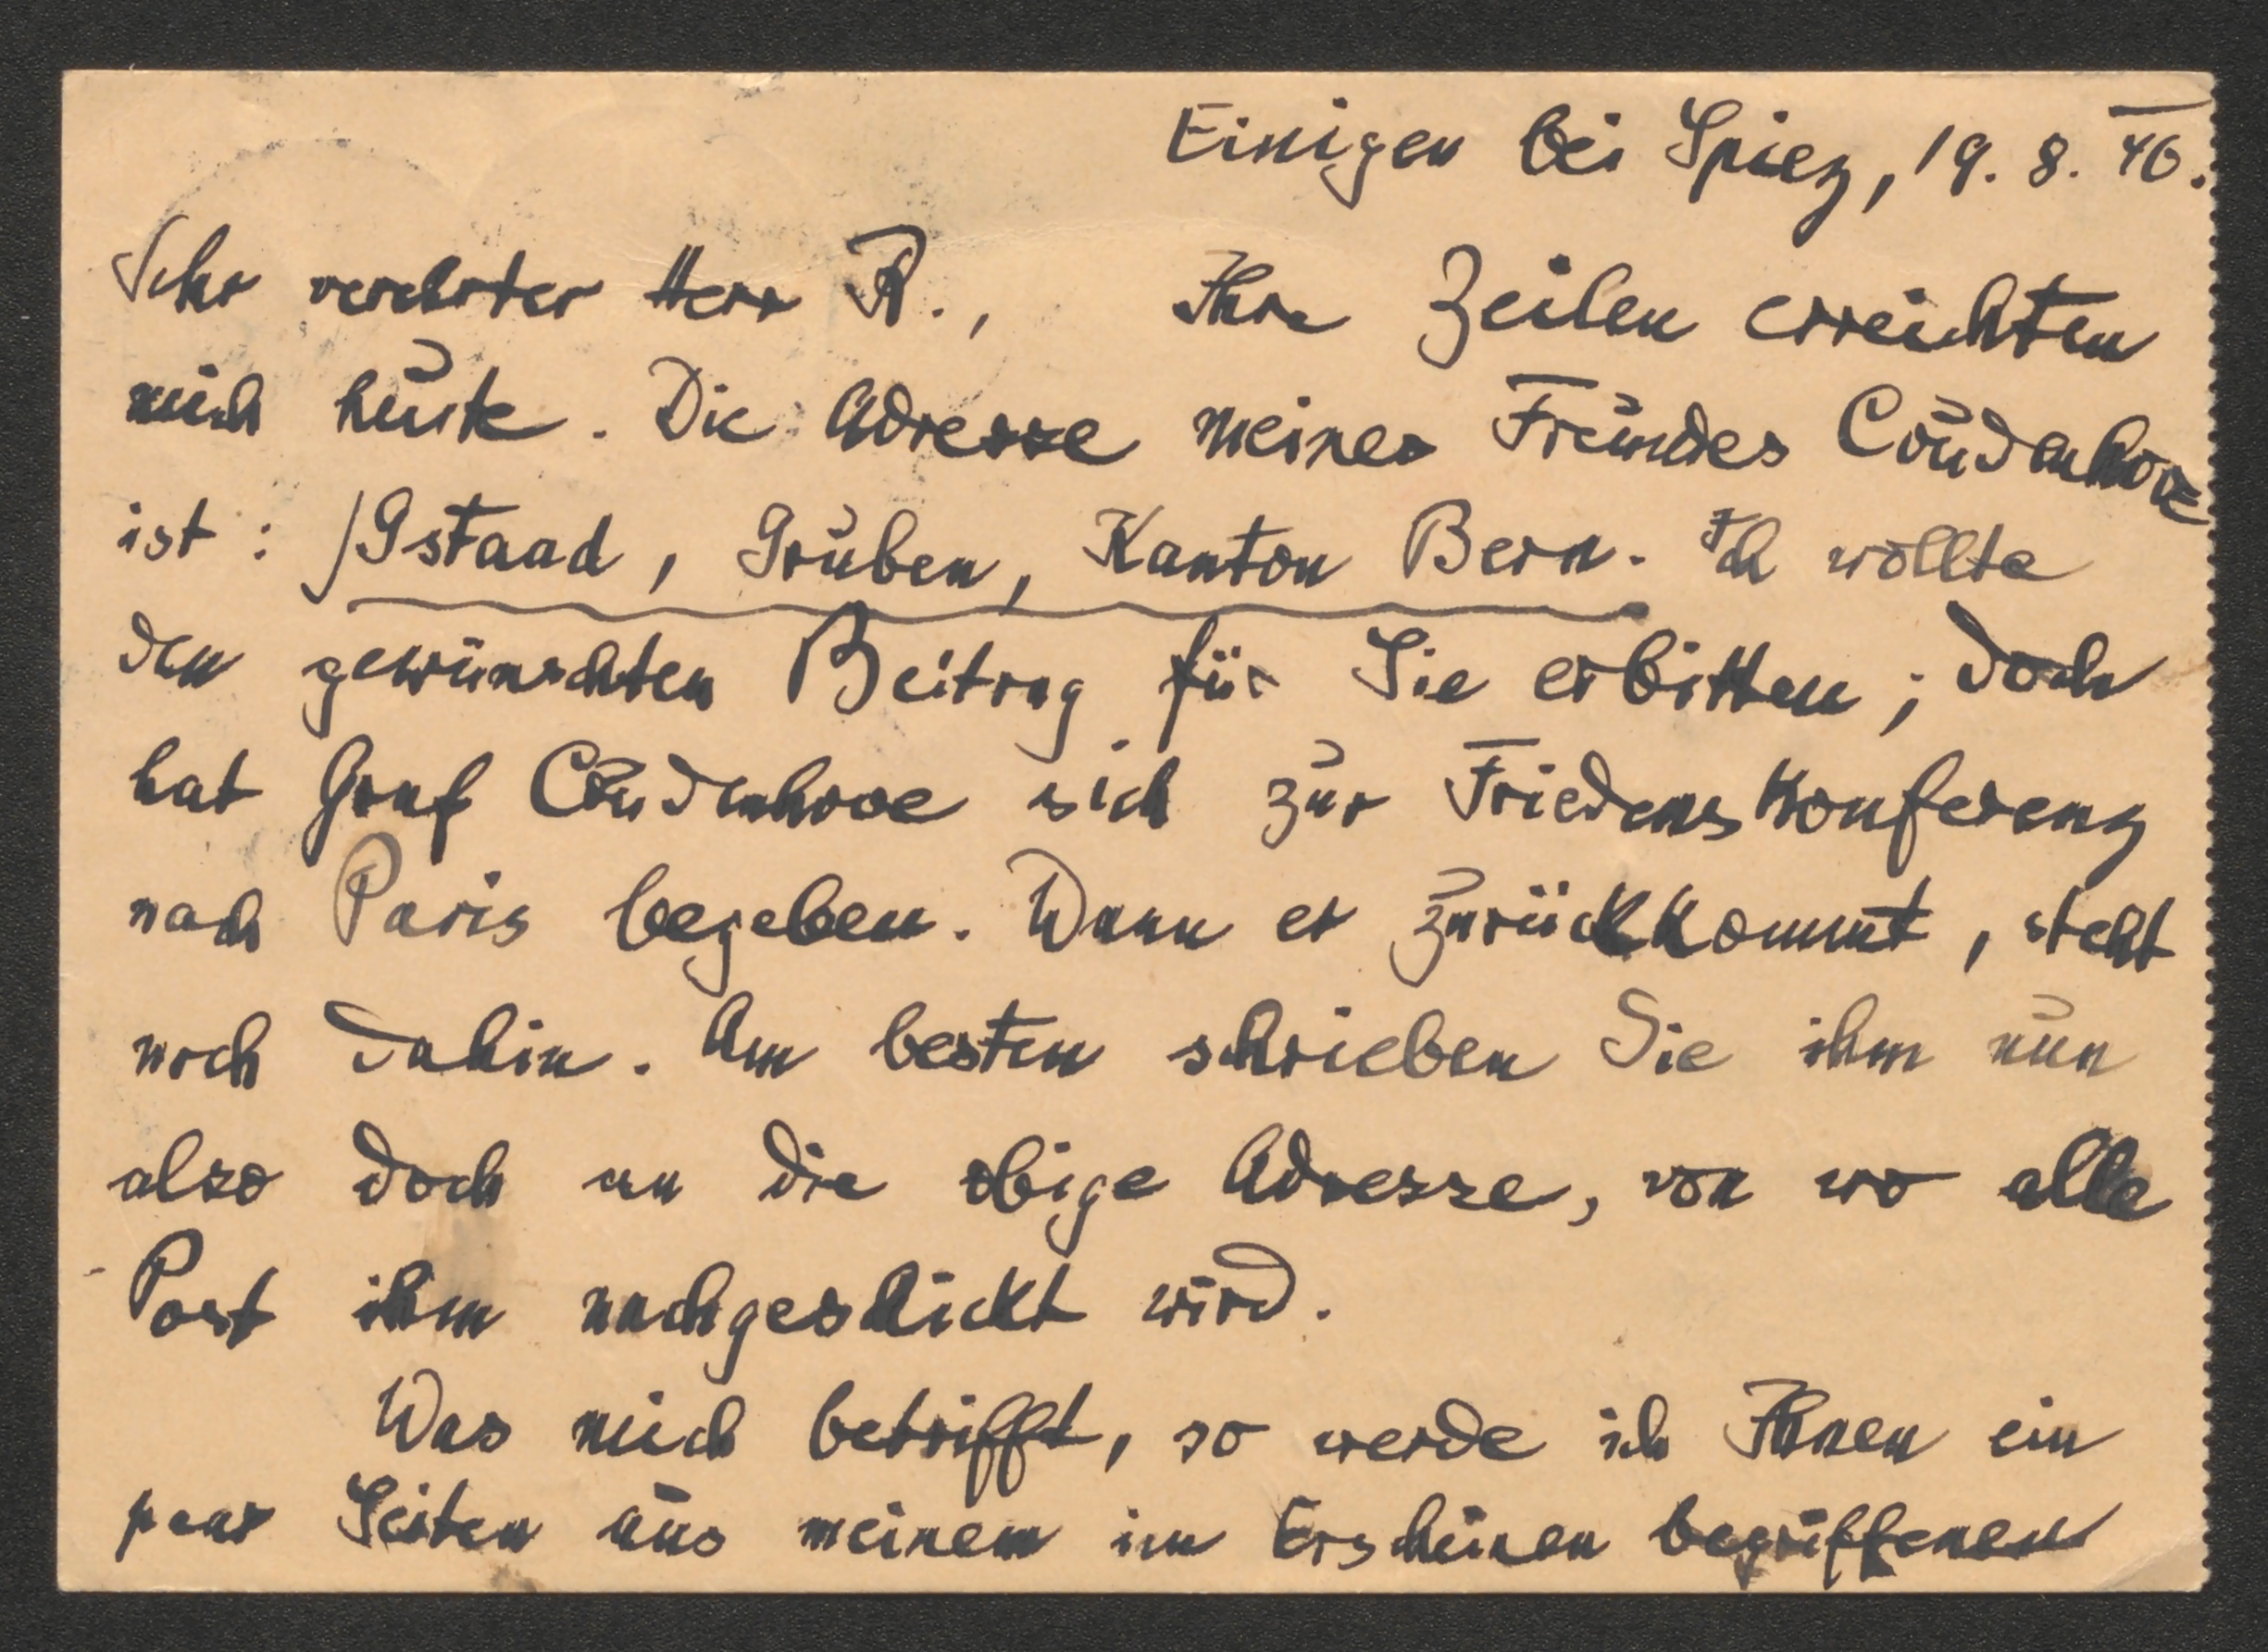 Einigen bei Spiez, 19. 8. 46.
Sehr verehrter Herr R., Ihre Zeilen erreichten
mich heute. Die Adresse meines Freundes Coudenhove
ist: Gstaad, Gruben, Kanton Bern. Ich wollte
den gewünschten Beitrag für Sie erbitten; doch
hat Graf Coudenhove sich zur Friedenskonferenz
nach Paris begeben. Wann er zurückkommt, steht
noch dahin. Am besten schrieben Sie ihm nun
also doch an die obige Adresse, von wo alle
Post ihm nachgeschickt wird.
Was mich betrifft, so werde ich Ihnen ein
paar Seiten aus meinem im Erscheinen begriffenen